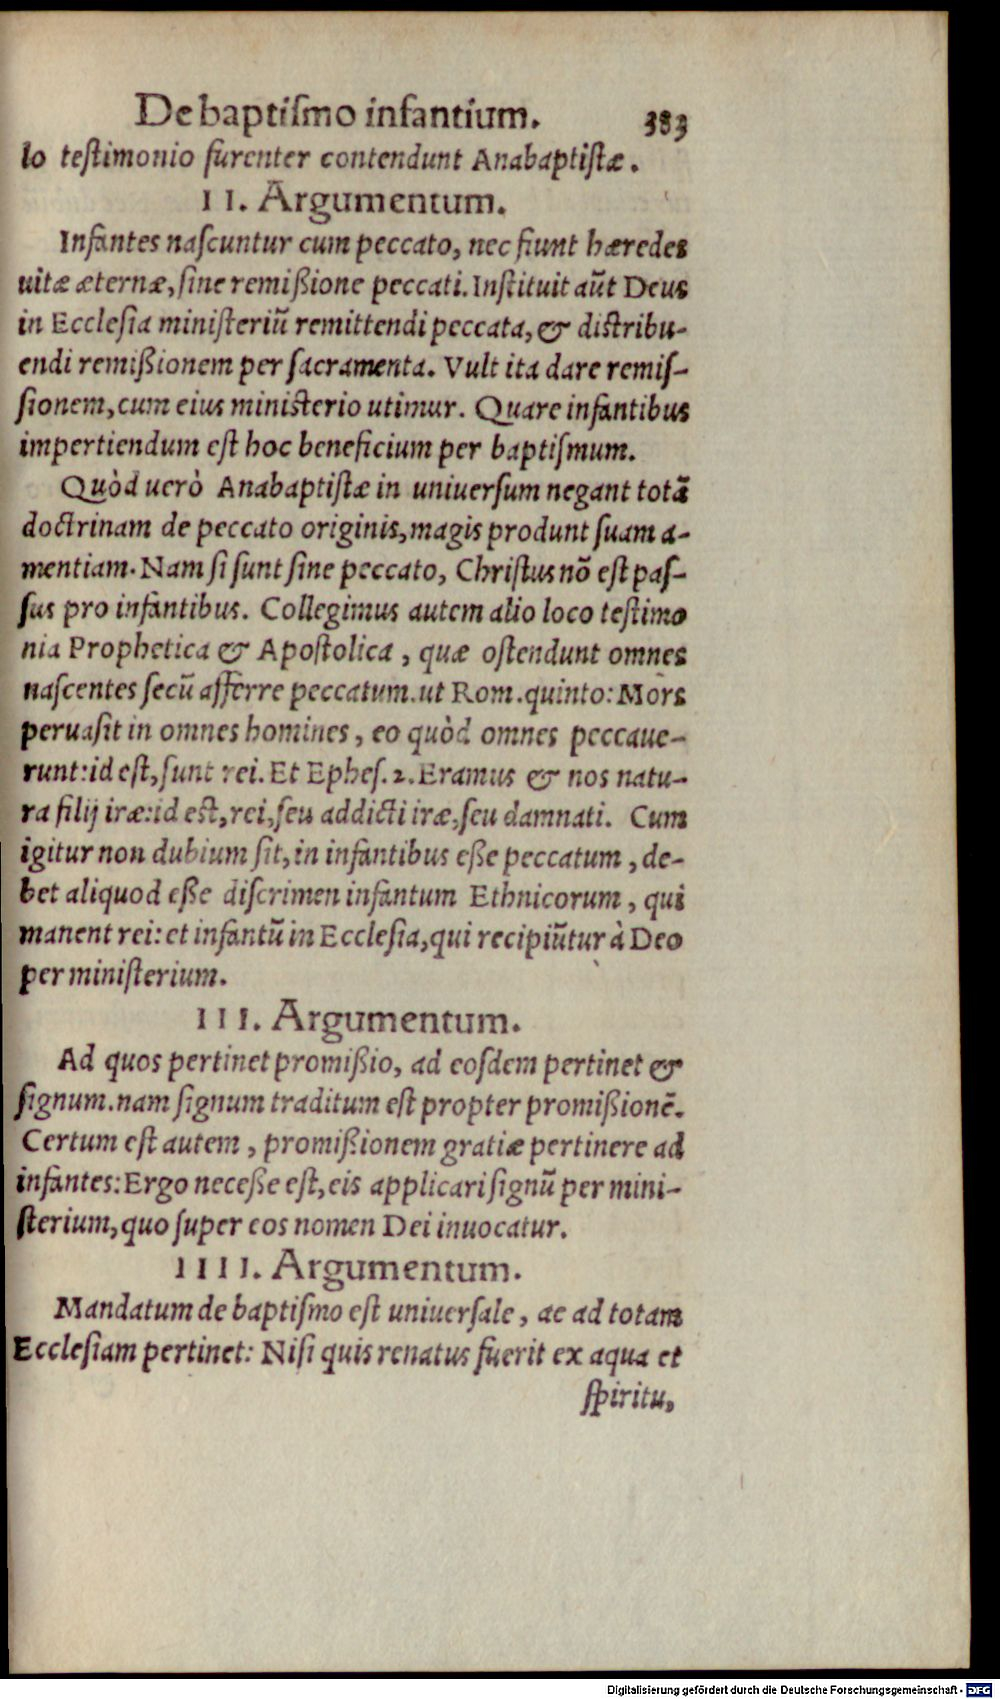 De baptiſmo infantium. 383
lo teſtimonio furenter contendunt Anabaptiſtæ.
II. Argumentum.
Infantes naſcuntur cum peccato, nec fiunt hæredes
uitæ æternæ, ſine remißione peccati. Inſtituit aūt Deus
in Eccleſia miniſteriū remittendi peccata, & diſtribu-
endi remißionem per ſacramenta. Vult ita dare remiſ-
ſionem, cum eius miniſterio utimur. Quare infantibus
impertiendum eſt hoc beneficium per baptiſmum.
Quòd uerò Anabaptiſtæ in uniuerſum negant totã
doctrinam de peccato originis, magis produnt ſuam a-
mentiam. Nam ſi ſunt ſine peccato, Chriſtus nõ eſt paſ-
ſus pro infantibus. Collegimus autem alio loco teſtimo
nia Prophetica & Apoſtolica, quæ oſtendunt omnes
naſcentes ſecū afferre peccatum. ut Rom. quinto: Mors
peruaſit in omnes homines, eo quòd omnes peccaue-
runt: id eſt, ſunt rei. Et Epheſ. 2. Eramus & nos natu-
ra filij iræ: id est, rei, ſeu addicti iræ, ſeu damnati. Cum
igitur non dubium ſit, in infantibus eße peccatum, de-
bet aliquod eße diſcrimen infantum Ethnicorum, qui
manent rei: et infantū in Eccleſia, qui recipiūtur à Deo
per miniſterium.
III. Argumentum.
Ad quos pertinet promißio, ad eoſdem pertinet &
ſignum. nam ſignum traditum eſt propter promißionē.
Certum eſt autem, promißionem gratiæ pertinere ad
infantes: Ergo neceße eſt, eis applicari ſignū per mini-
ſterium, quo ſuper eos nomen Dei inuocatur.
IIII. Argumentum.
Mandatum de baptiſmo eſt uniuerſale, ac ad totam
Eccleſiam pertinet: Niſi quis renatus fuerit ex aqua et
ſpiritu,
Digitalisierung gefördert durch die Deutsche Forschungsgemeinschaft - DFG